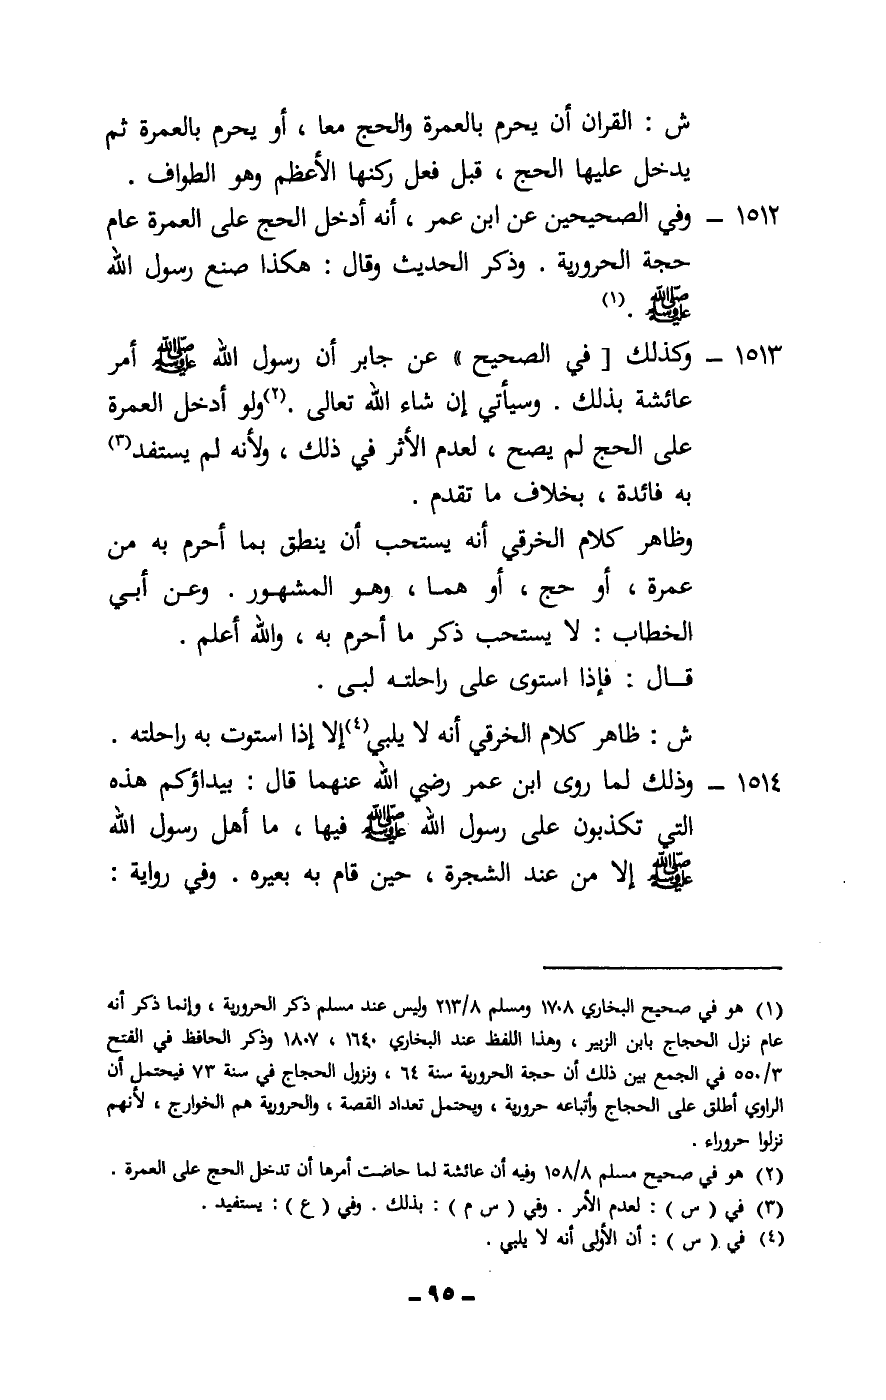 ش : القران أن يحرم بالعمرة والحج معا ، أو يحرم بالعمرة ثم
يدخل عليها الحج ، قبل فعل ركنها الأعظم وهو الطواف .
١٥١٢ – وفي الصحيحين عن ابن عمر ، أنه أدخل الحج على العمرة عام
حجة الحرورية . وذكر الحديث وقال : هكذا صنع رسول الله
ﷺ .(١)
١٥١٣ – وكذلك [ في الصحيح » عن جابر أن رسول الله ﷺ أمر
عائشة بذلك . وسيأتي إن شاء الله تعالى .(٢)ولو أدخل العمرة
على الحج لم يصح ، لعدم الأثر في ذلك ، ولأنه لم يستفد(٣)
به فائدة ، بخلاف ما تقدم .
وظاهر كلام الخرقي أنه يستحب أن ينطق بما أحرم به من
عمرة ، أو حج ، أو هما ، وهو المشهور . وعن أبي
الخطاب : لا يستحب ذكر ما أحرم به ، والله أعلم .
قال : فإذا استوى على راحلته لبى .
ش : ظاهر كلام الخرقي أنه لا يلبي(٤)إلا إذا استوت به راحلته .
١٥١٤ – وذلك لما روى ابن عمر رضي الله عنهما قال : بيداؤكم هذه
التي تكذبون على رسول الله ﷺ فيها ، ما أهل رسول الله
ﷺ إلا من عند الشجرة ، حين قام به بعيره . وفي رواية :
(١) هو في صحيح البخاري ١٧٠٨ ومسلم ٢١٣/٨ وليس عند مسلم ذكر الحرورية ، وإنما ذكر أنه
عام نزل الحجاج بابن الزبير ، وهذا اللفظ عند البخاري ١٦٤٠ ، ١٨٠٧ وذكر الحافظ في الفتح
٥٥٠/٣ في الجمع بين ذلك أن حجة الحرورية سنة ٦٤ ، ونزول الحجاج في سنة ٧٣ فيحتمل أن
الراوي أطلق على الحجاج وأتباعه حرورية ، ويحتمل تعداد القصة ، والحرورية هم الخوارج ، لأنهم
نزلوا حروراء .
(٢) هو في صحيح مسلم ١٥٨/٨ وفيه أن عائشة لما حاضت أمرها أن تدخل الحج على العمرة .
(٣) في ( س ) : لعدم الأمر . وفي ( س م ) : بذلك . وفي ( ع ) : يستفيد .
(٤) في ( س ) : أن الأولى أنه لا يلبي .
– ٩٥ –